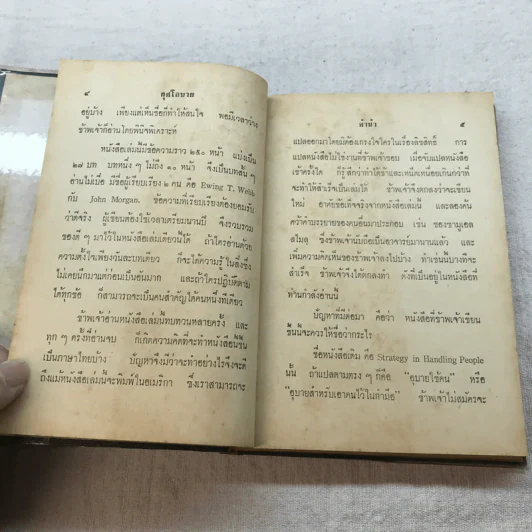 ๔ กุศโลบาย
อยู่บ้าง เพียงแต่เห็นชื่อก็ทำให้สนใจ พอมีเวลาว่าง
ข้าพเจ้าก็อ่านโดยพินิจพิเคราะห์
หนังสือเล่มนี้มีข้อความราว ๒๕๐ หน้า แบ่งเป็น
๒๗ บท บทหนึ่ง ๆ ไม่ถึง ๑๐ หน้า จึงเป็นบทสั้น ๆ
อ่านไม่เบื่อ มีชื่อผู้เรียบเรียง ๒ คน คือ Ewing T. Webb
กับ John Morgan. ข้อความที่เรียบเรียงต้องยอมรับ
ว่าดีจริง ผู้เขียนต้องใช้เวลาเตรียมนานปี จึงรวบรวม
ของดี ๆ มาไว้ในหนังสือเล่มเดียวนี้ได้ ถ้าใครอ่านด้วย
ความตั้งใจเพียงวันละบทเดียว ก็จะได้ความรู้ในสิ่งซึ่ง
ไม่เคยนึกมาแต่ก่อนเป็นอันมาก และถ้าใครปฏิบัติตาม
ได้ทุกข้อ ก็สามารถจะเป็นคนสำคัญได้คนหนึ่งทีเดียว
ข้าพเจ้าอ่านหนังสือเล่มนี้ทบทวนหลายครั้ง และ
ทุก ๆ ครั้งที่อ่านจบ ก็เกิดความคิดที่จะทำหนังสือนี้ขึ้น
เป็นภาษาไทยบ้าง ปัญหาจึงมีว่าจะทำอย่างไรจึงจะดี
ถึงแม้หนังสือเล่มนี้จะพิมพ์ในอเมริกา ซึ่งเราสามารถจะ
คำนำ ๕
แปลออกมาโดยไม่ต้องเกรงใจใครในเรื่องลิขสิทธิ์ การ
แปลหนังสือไม่ใช่งานที่ข้าพเจ้าชอบ เมื่อจับแปลหนังสือ
เข้าครั้งใด ก็รู้สึกว่าทำได้ช้าและเหน็ดเหนื่อยเกินกว่าที่
จะทำให้สำเร็จเป็นเล่มได้ ข้าพเจ้าจึงตกลงว่าจะเขียน
ใหม่ อาศัยข้อเท็จจริงจากหนังสือเล่มนี้ และลองค้น
คว้าคำบรรยายของคนอื่นมาประกอบ เช่น ของซามูเอล
สไมล ซึ่งข้าพเจ้านับถือเป็นอาจารย์มานานแล้ว และ
เพิ่มความคิดเห็นของข้าพเจ้าลงไปบ้าง ทำเช่นนี้บางทีจะ
สำเร็จ ข้าพเจ้าจึงได้ตกลงทำ ดังที่เป็นอยู่ในหนังสือที่
ท่านกำลังอ่านนี้
ปัญหาที่มีต่อมา คือว่า หนังสือที่ข้าพเจ้าเขียน
ขึ้นนี้จะควรให้ชื่อว่ากระไร
ชื่อหนังสือเดิม คือ Strategy in Handling People
นั้น ถ้าแปลตามตรง ๆ ก็คือ “อุบายใช้คน” หรือ
“อุบายสำหรับเอาคนไว้ในกำมือ” ข้าพเจ้าไม่สมัครจะ